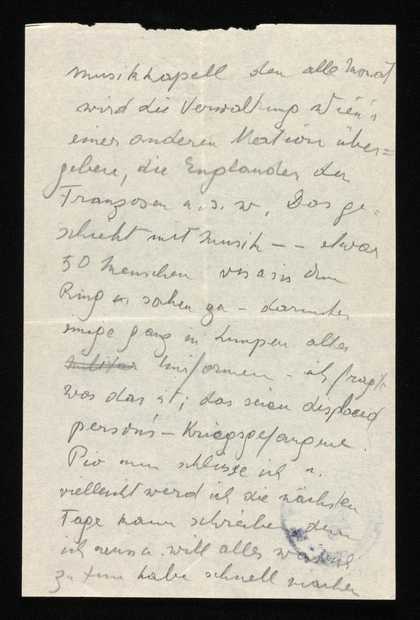 Musikkapell den alle Monat
wird die Verwaltung Wien's
einer anderen Nation über=
geben, die Engländer den
Franzosen u.s.w. Das ge-
schieht mit Musik -- etwa
50 Menschen
Ring sahen zu - darunter
einige ganz in Lumpen alter
Militär Uniformen - ich fragte
was das ist; das seien displaced
persons - Kriegsgefangene.
nun schliesse ich u.
vielleicht werd ich die nächsten
Tage kaum schreiben denn
ich muss u. will alles
zu tun habe schnell machen